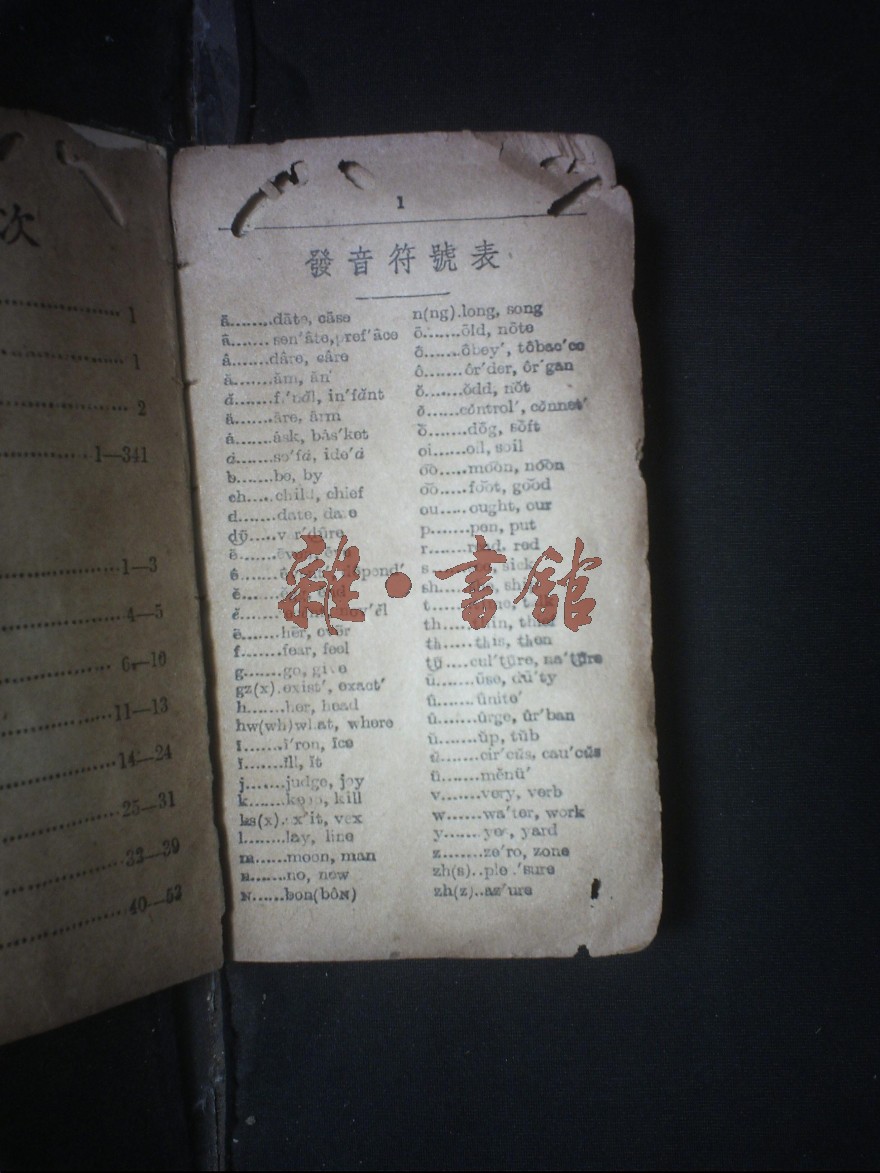 次
1
1
2
1—341
1—3
4—5
6—10
11—13
14—24
25—31
32—39
40—53
1
發音符號表
ā........dāte, cāse
sen′âte, pref′âce
â.......dâre, câre
ă.......ăm, ăn′
in′fănt
ä.......äre, ärm
ȧ.......ȧsk, bȧs′ket
so′fȧ, ide′ȧ
b.......be, by
ch.....child, chief
d.......date, dare
dū̇.....ver′dū̇re
ē.......
depend′
ĕ.......
nov′ĕl
ẽ.......hẽr, ovẽr
f.......fear, feel
g.......go, give
gz(x).exist′, exact′
h.......her, head
hw(wh)what, where
ī.......ī′ron, īce
ĭ.......ĭll, ĭt
j.......judge, joy
k.......keep, kill
ks(x).ex′it, vex
l.......lay, line
m......moon, man
n.......no, new
N......bon(bôN)
n(ng).long, song
ō.......ōld, nōte
ô.......ôbey′, tôbac′co
ô.......ôr′der, ôr′gan
ŏ.......ŏdd, nŏt
ŏ......cŏntrol′, cŏnnect′
dŏg, sŏft
oi......oil, soil
o͞o.....mo͞on, no͞on
o͝o.....fo͝ot, go͝od
ou.....ought, our
p.......pen, put
r.......read, red
s....... sick
sh.....
t.......
th..... thin,
th.....this, then
tū̇....cul′tū̇re, na′tū̇re
ū.......ūse, dū′ty
û.......ûnite′
û.......ûrge, ûr′ban
ŭ.......ŭp, tŭb
ŭ.......cir′cŭs, cau′cŭs
ü.......mĕnü′
v.......very, verb
w......wa′ter, work
y......yes, yard
z.......ze′ro, zone
zh(s)..pleasure
zh(z)..az′ure
雜·書舘